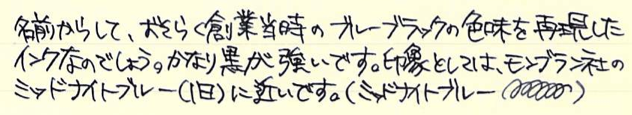 名前からして、おそらく創業当時のブルーブラックの色味を再現した
インクなのでしょう。かなり黒が強いです。印象としては、モンブラン社の
ミッドナイトブルー(旧)に近いです。(ミッドナイトブルー        )